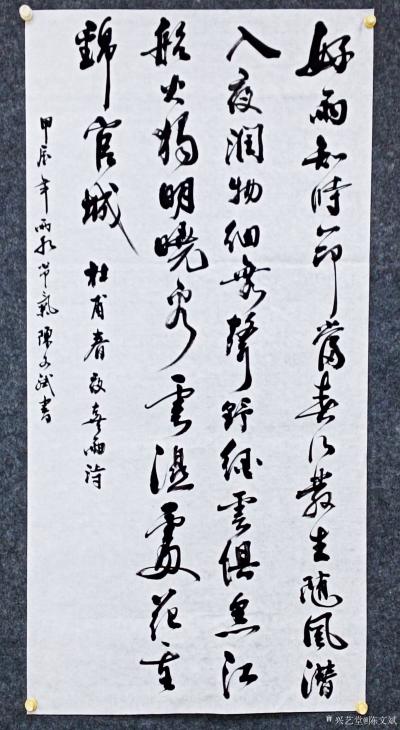 好雨知時節當春乃發生随風潛
入夜潤物細無聲野徑雲俱黑江
船火獨明曉看雲濕處花重
錦官城 杜甫春夜喜雨詩
甲辰年雨水節氣陳文斌書
兴艺堂@陈文斌